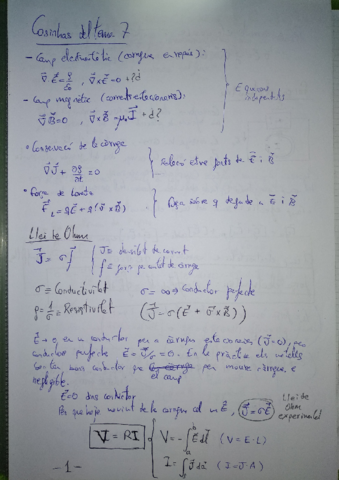 Cosinhas del tema 7
- Camp electrostàtic (càrregues en repòs):
∇·E = ρ/ε₀ , ∇×E = 0 + d
- Camp magnètic (corrents estacionaris):
∇·B = 0 , ∇×B = μ₀J + d?
Equacions
independents
• Conservació de la càrrega
∇J + ∂ρ/∂t = 0
Relació entre parts de E i B
• Força de Lorentz
F_L = qE + q(v × B)
Força sobre q deguda a E i B
Llei de Ohm
J = σf
J ≡ densitat de corrent
f ≡ força per unitat de càrrega
σ ≡ Conductivitat
σ = ∞ → Conductor perfecte
ρ = 1/σ ≡ Resistivitat
(J = σ(E + v × B))
E = 0 en un conductor per a càrregues estacionàries (J = 0), per
conductor perfecte E = J/σ = 0. En la pràctica els metalls
son conductors que el camp per moure càrregues és
negligible.
E = 0 dins conductor
moviment de les càrregues E, J = σE
Llei de
Ohm
experimental
V = RI
V = -∫ₐᵇ E dl (V = E·L)
I = ∫ₛ J da (I = J·A)
- 1 -